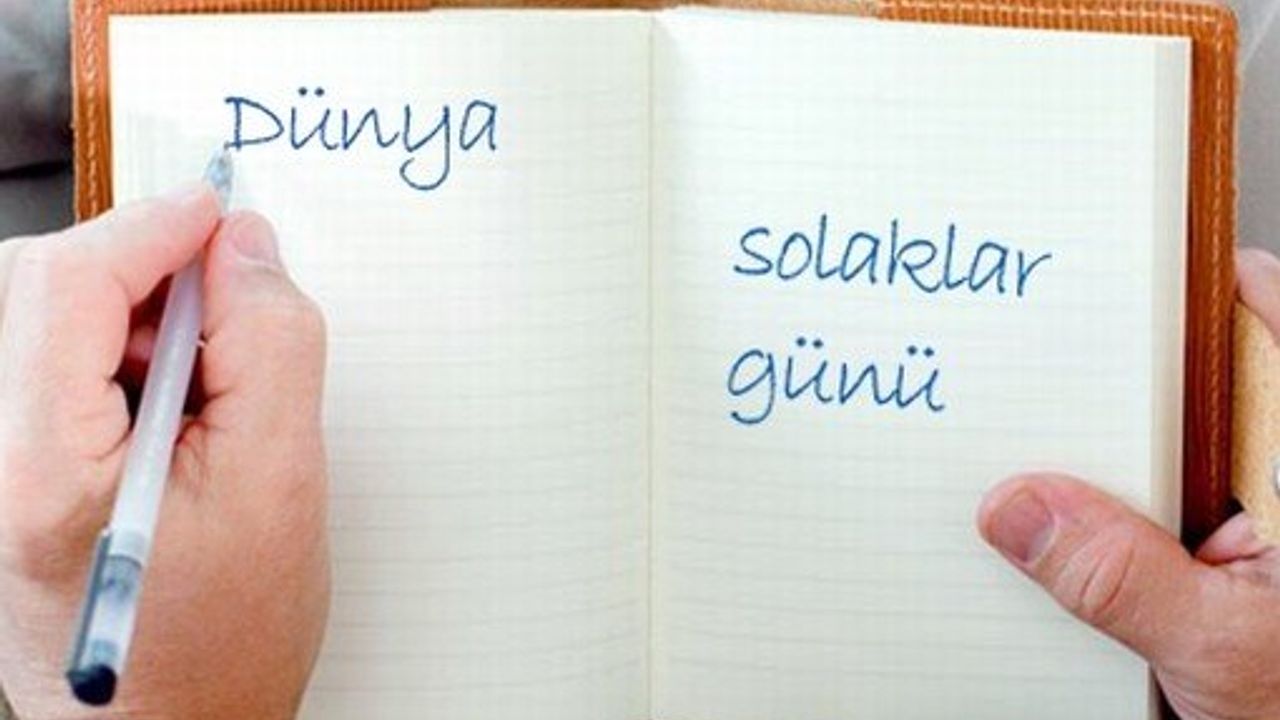 Dünya
solaklar
günü